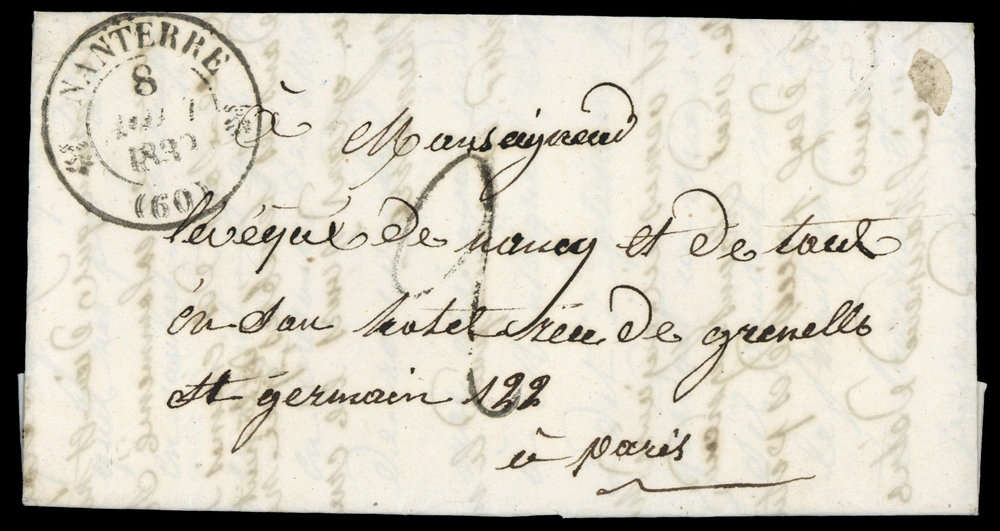 NANTERRE
8
183
(60)
à Monseigneur
levéque de nancy et de toul
én son hotel rue de grenelle
St germain 122
à paris
2